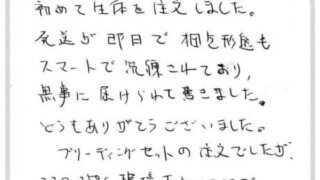 初めて生体を注文しました。
発送が即日で梱包形態も
スマートで洗練されており、
無事に届けられて驚きました。
どうもありがとうございました。
ブリーディングセットの注文でしたが、